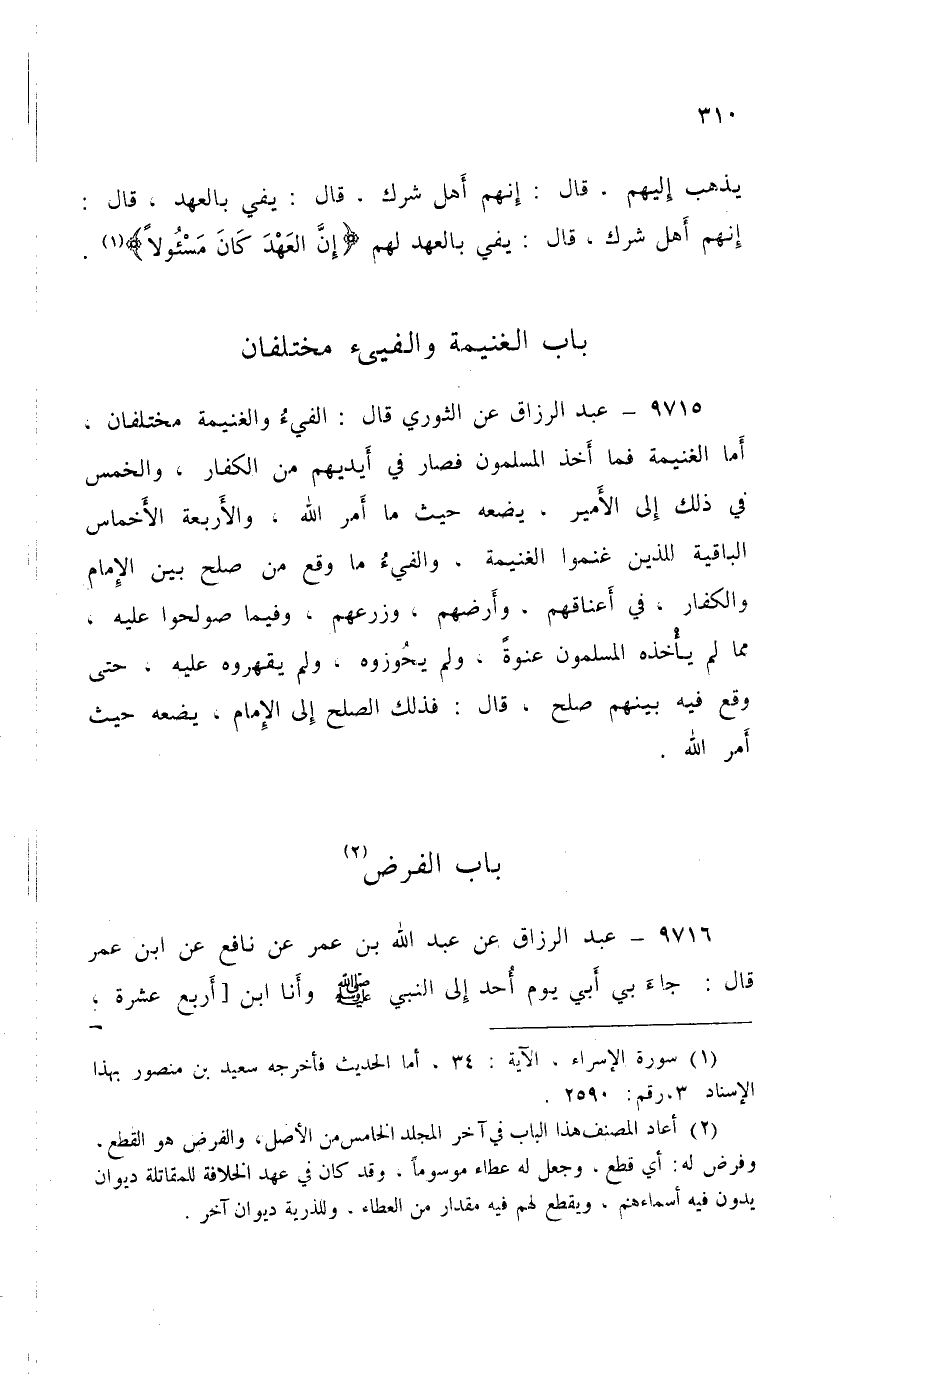 ٣١٠
يذهب إليهم . قال : إنهم أهل شرك . قال : يفي بالعهد ، قال :
إنهم أهل شرك ، قال : يفي بالعهد لهم ﴿إِنَّ العَهْدَ كَانَ مَسْئُولاً﴾(١) .
باب الغنيمة والفيىء مختلفان
٩٧١٥ – عبد الرزاق عن الثوري قال : الفيءُ والغنيمة مختلفان ،
أما الغنيمة فما أَخذ المسلمون فصار في أَيديهم من الكفار ، والخمس
في ذلك إلى الأَمير . يضعه حيث ما أَمر الله ، والأَربعة الأَخماس
الباقية للذين غنموا الغنيمة . والفيءُ ما وقع من صلح بين الإِمام
والكفار ، في أَعناقهم . وأَرضهم ، وزرعهم ، وفيما صولحوا عليه ،
مما لم يأْخذه المسلمون عنوةً ، ولم يحُوزوه ، ولم يقهروه عليه ، حتى
وقع فيه بينهم صلح ، قال : فذلك الصلح إلى الإِمام ، يضعه حيث
أَمر الله .
باب الفرض(٢)
٩٧١٦ – عبد الرزاق عن عبد الله بن عمر عن نافع عن ابن عمر
قال : جاءَ بي أَبي يوم أُحد إلى النبي ﷺ وأَنا ابن [أَربع عشرة ،
(١) سورة الإسراء . الآية : ٣٤ . أما الحديث فأخرجه سعيد بن منصور بهذا
الإسناد ٣.رقم: ٢٥٩٠ .
(٢) أعاد المصنف هذا الباب في آخر المجلد الخامس من الأصل، والفرض هو القطع .
وفرض له: أي قطع . وجعل له عطاء موسوماً . وقد كان في عهد الخلافة للمقاتلة ديوان
يدون فيه أسماءهم ، ويقطع لهم فيه مقدار من العطاء . وللذرية ديوان آخر .